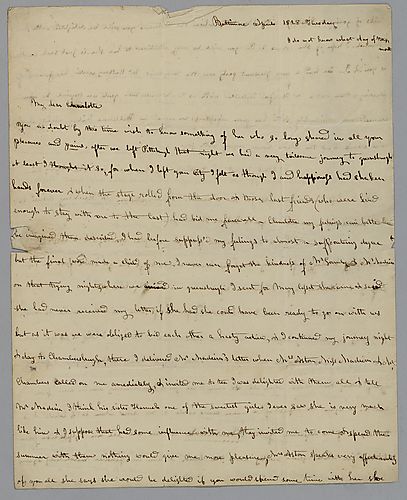 Baltimore April 1828 Thursday
I do not know what day of
My dear Charlotte
You no doubt by this time wish to know something of her who so long shared in all your
pleasures and pains after we left Pittsburgh that night we had a very tiresome journey to greensburgh
at least I thought it so, for when I left your city I felt as though I and happiness had shaken
hands forever & when the stage rolled from the door & those last friends who were kind
enough to stay with me to the last had bid me farewell Charlotte my feelings can better be
imagined than described, I had before suppress'd my feelings to almost a suffocating degree
but the final adieu made a child of me. I never can forget the kindness of Mr & Mr Madeira
on that trying night when we in greensburgh I sent for Mary & said
she had never received my letter, if she had she could have been ready to go on with us
but as it was we were obliged to bid each other a hasty adieu, & I continued my journey night
& day to Chambersburgh, there I delivered Mr Madeira's letter when Mrs Aston Miss Madeira &
Chambers called on me immediately, & invited me to tea I was delighted with them all & tell
Mr Madeira I think his sister Hannah one of the sweetest girls I ever saw she is very much
like him & I suppose that had some influence with me, they invited me to come & spend the
summer with them nothing would give me more pleasure, Mrs Aston speaks very affectionately
of you all she says she would be delighted if you would spend some time with her she